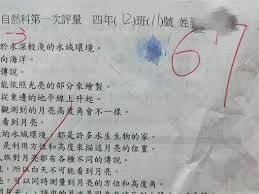 自然科第一次評量 四年(12)班(16)號 姓
67
-3
於水深較淺的水域環境。
向海洋。
傳說。
能依照光亮的部分來繪製。
從東邊的地平線上升起。
觀測到的月亮高度角會不一樣。
看到月亮。
的水域環境,都是許多水生生物的家。
是利用方位和高度角來描述月亮的位置。
族對月亮都有各種不同的傳說。
所以白天不可能看到月亮。
可以同時測量到月亮的方位和高度角。